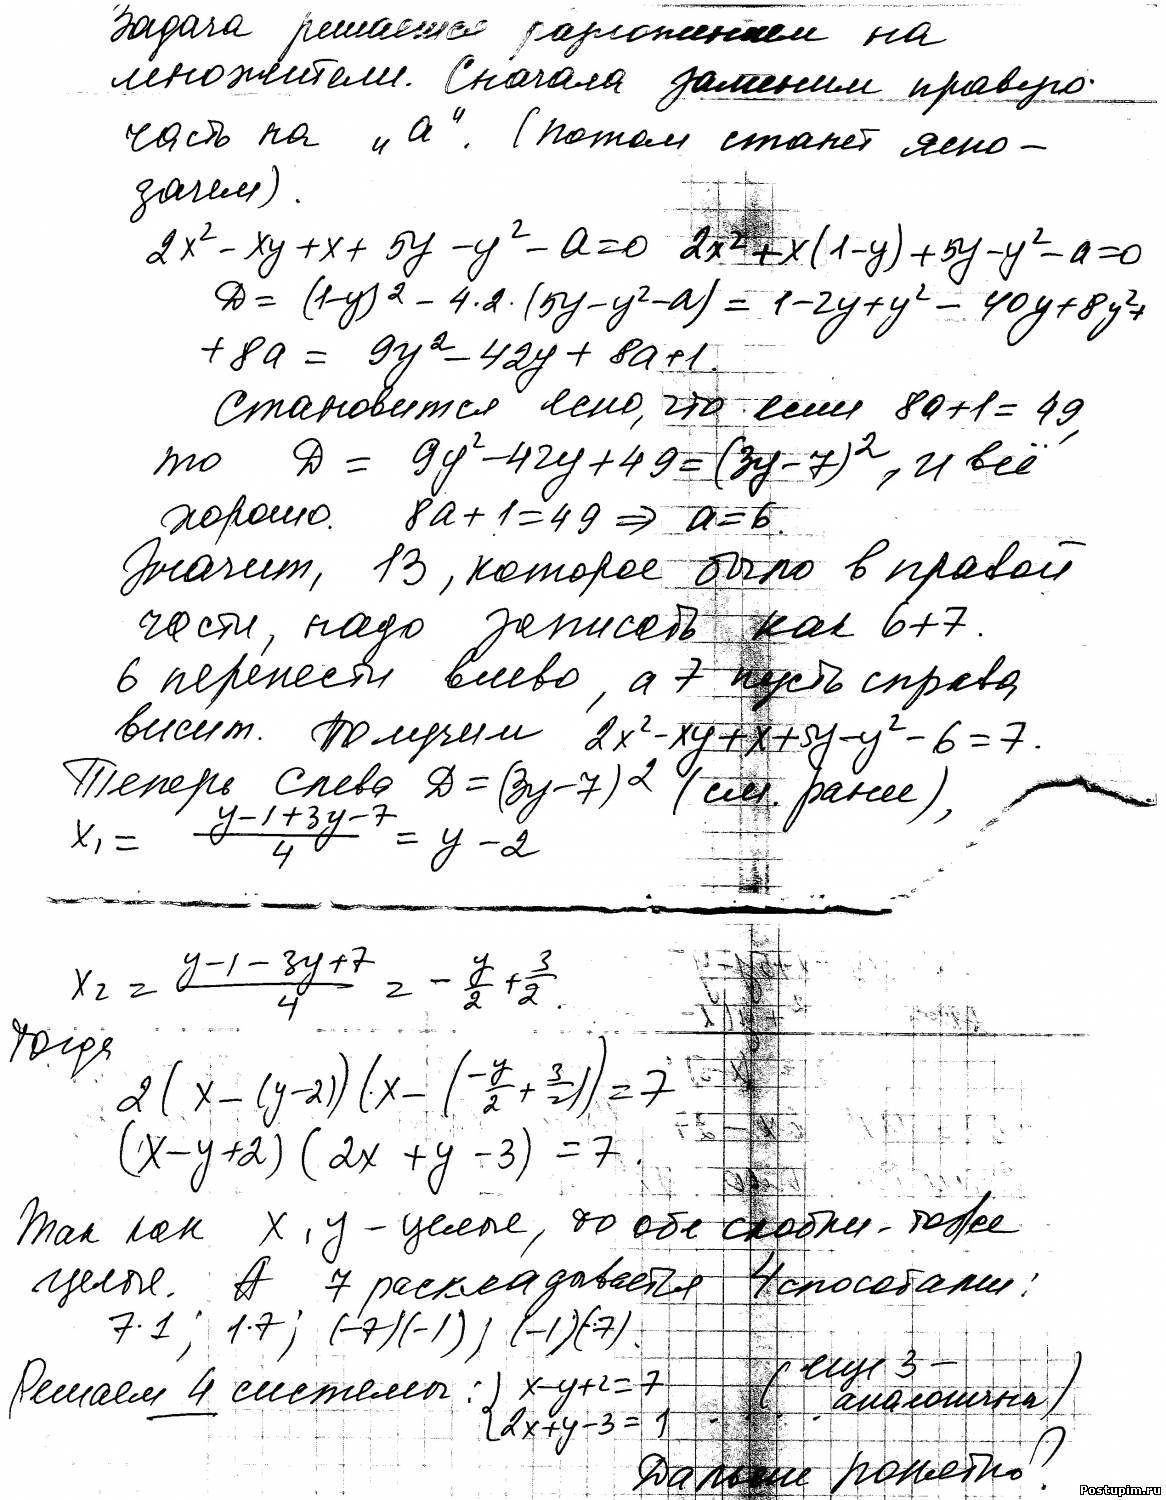 Задача решается разложением на
множители. Сначала заменим правую
часть на „а“. (Потом станет ясно –
зачем).
2x² - xy + x + 5y - y² - a = 0 2x² + x(1-y) + 5y - y² - a = 0
D = (1-y)² - 4·2·(5y - y² - a) = 1 - 2y + y² - 40y + 8y² +
+ 8a = 9y² - 42y + 8a + 1.
Становится ясно, что если 8a + 1 = 49,
то D = 9y² - 42y + 49 = (3y - 7)², и всё
хорошо. 8a + 1 = 49 ⇒ a = 6.
Значит, 13, которое было в правой
части, надо записать как 6+7.
6 перенести влево, а 7 пусть справа
висит. Получим 2x² - xy + x + 5y - y² - 6 = 7.
Теперь слева D = (3y - 7)² (см. ранее),
x₁ = (y - 1 + 3y - 7)/4 = y - 2
x₂ = (y - 1 - 3y + 7)/4 = - y/2 + 3/2.
Тогда
2(x - (y - 2))(x - (-y/2 + 3/2)) = 7
(x - y + 2)(2x + y - 3) = 7.
Так как x, y - целые, то обе скобки - тоже
целые. А 7 раскладывается 4 способами:
7·1; 1·7; (-7)(-1); (-1)(-7).
Решаем 4 системы: { x - y + 2 = 7 (еще 3 –
{ 2x + y - 3 = 1 аналогична)
Дальше понятно?
Postupim.ru